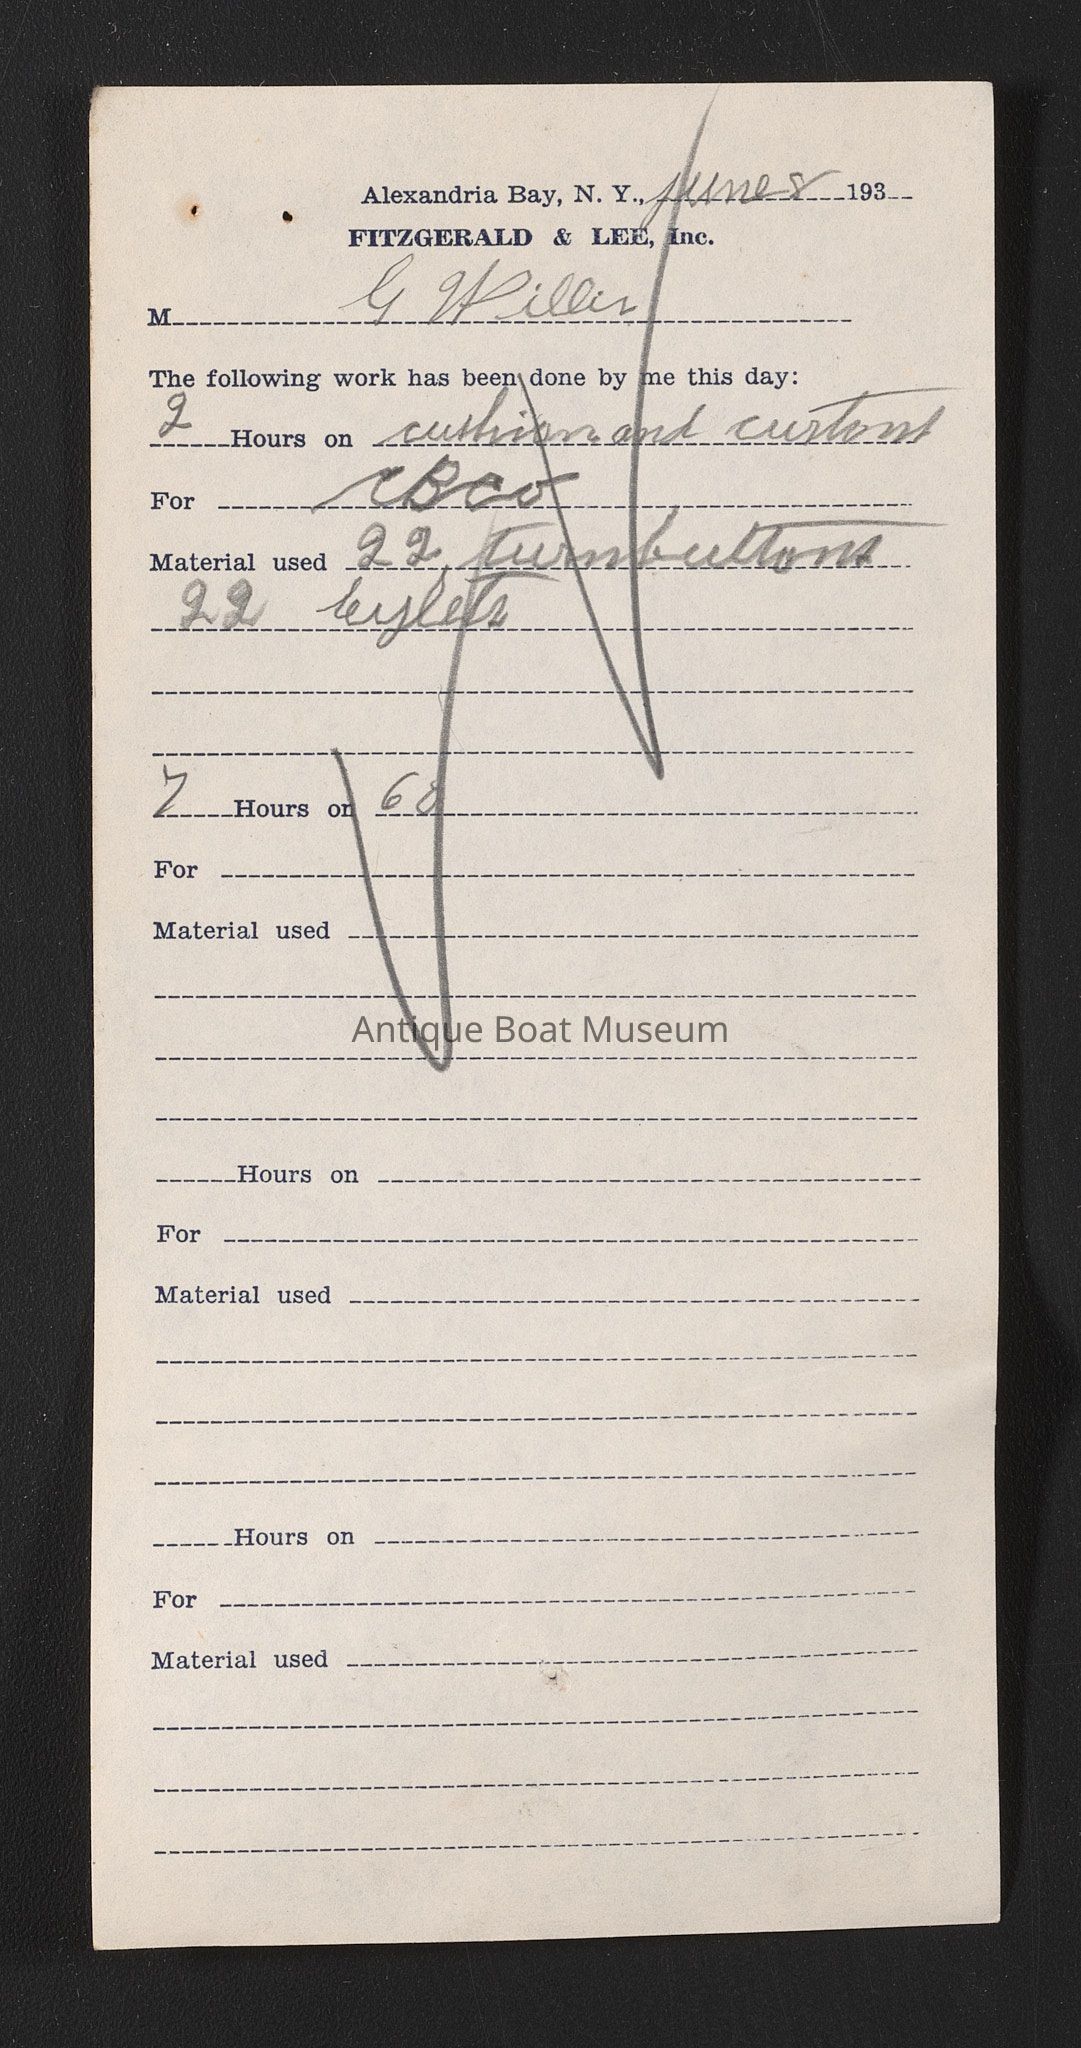 Alexandria Bay, N. Y., June 8 193
FITZGERALD & LEE, Inc.
M G Willis
The following work has been done by me this day:
2 Hours on cushion and
For
Material used 22 turnbuttons
22 Eyelets
7 Hours on 68
For
Material used
Antique Boat Museum
Hours on
For
Material used
Hours on
For
Material used